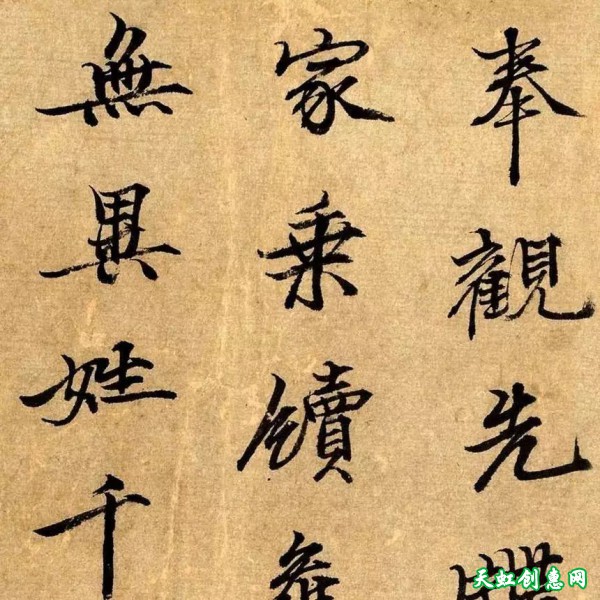 奉觀先
家乘續
無異姓千
天虹创惠网